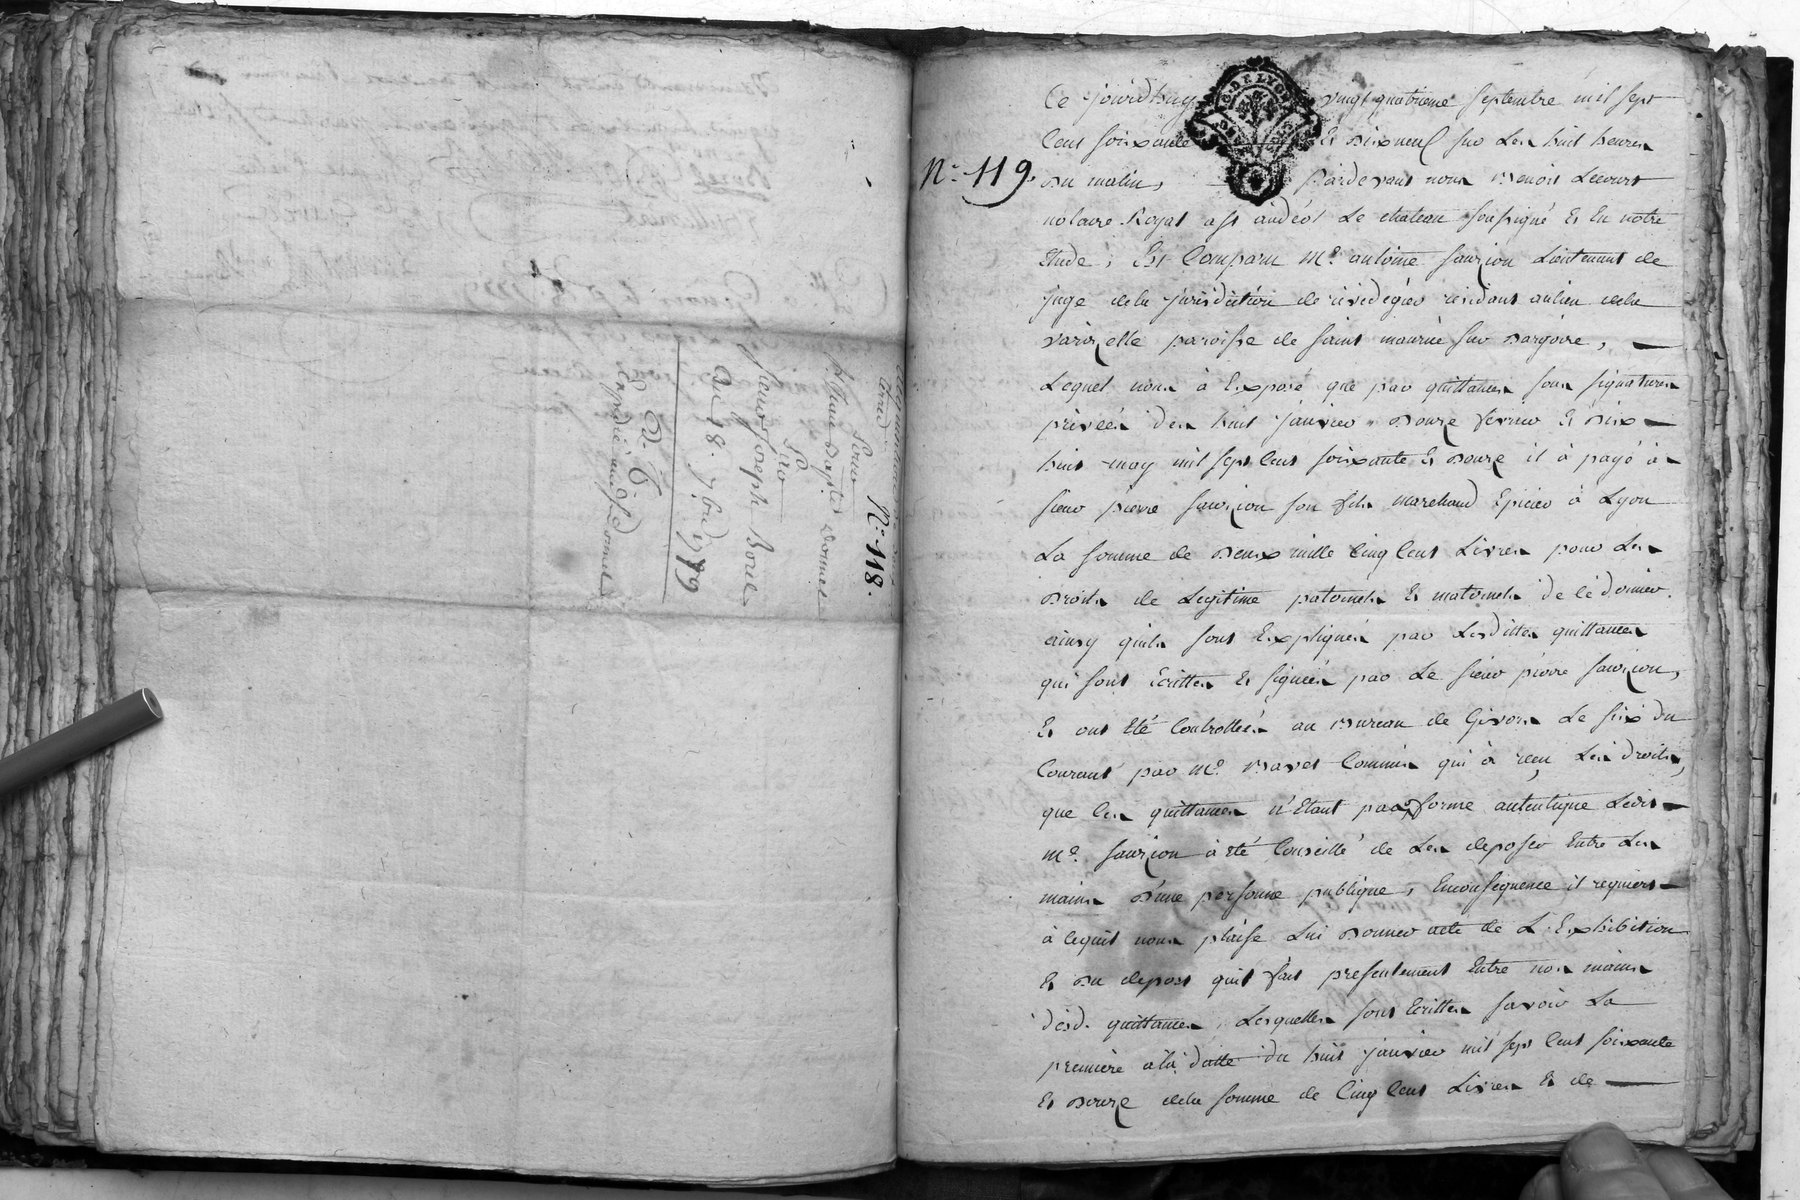 N.° 118.
Jean Bapte. Bonnel
Pro
Sieur Joseph Borel
du 18. 7bre 1779
E. D. G.
Expédié aud. s. Bonnel
GEN. DE LYON
N.° 119.
Ce jourdhuy vingt quatrieme septembre mil sept
Cent soixante et dixneuf sur les huit heures
du matin, pardevant nous Benoit Lecourt
notaire Royal a st andéol Le chateau soussigné et en notre
Etude ; Est Comparu Me. antoine sauzion Lieutenant de
juge de la jurisdiction de rivedegier residant au lieu de la
varizelle paroisse de saint maurice sur dargoire,
Lequel nous à Exposé que par quittances sous signatures
privéés des huit janvier, douze fevrier et dix
huit may mil sept Cent soixante et douze il à payé à
sieur pierre sauzion son fils marchand Epicier à Lyon
La somme de deux mille Cinq Cent Livres pour Les
droits de Legitime paternels et maternels de ce dernier
ainsy quils sont Expliqués par Lesdittes quittances
qui sont Ecrittes et signéés par Le sieur pierre sauzion,
et ont Eté Controlléés au Bureau de Givors Le six du
Courant par Me. Bavet Commis qui à reçu Les droits,
que les quittances n'Etant pas forme autentique Ledit
Me. sauzion à eté Conseillé de Les deposer Entre Les
mains d'une personne publique, Enconsequence il requiert
à cequil nous plaise Lui donner acte de L'Exhibition
et du depost quil fait presentement Entre nos mains
desd. quittances, Lesquelles sont Ecrittes savoir La
premiere à la datte du huit janvier mil sept Cent soixante
et douze de la somme de Cinq Cent Livres et de